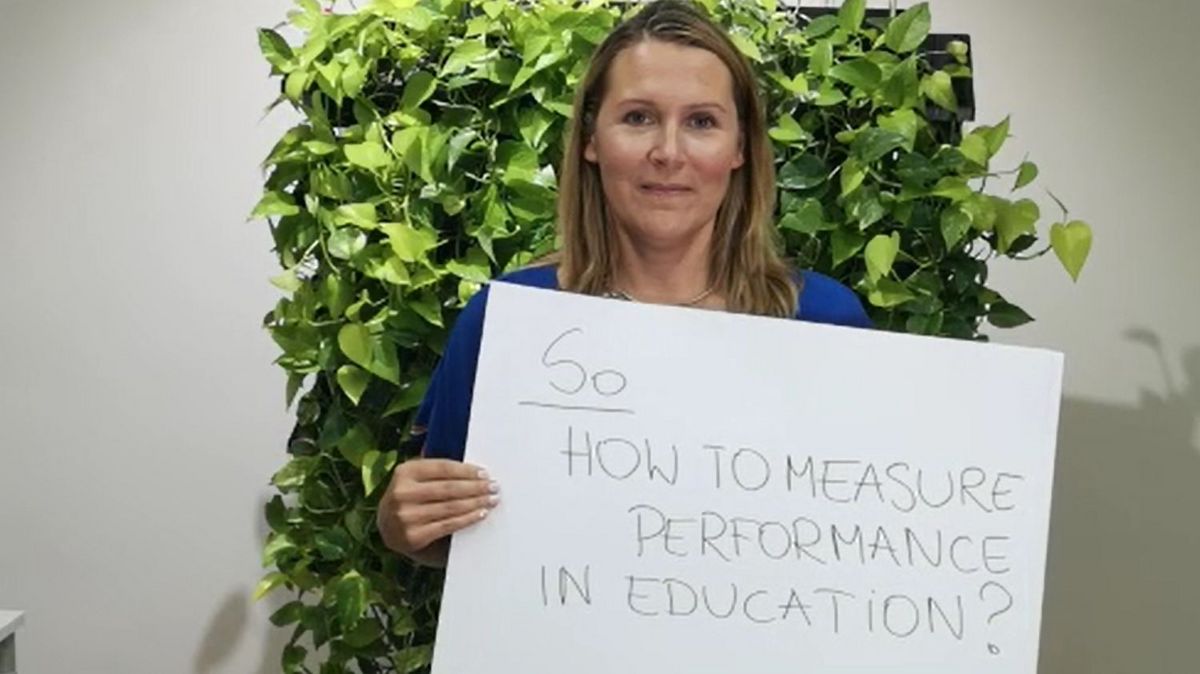 So
HOW TO MEASURE
PERFORMANCE
IN EDUCATiON?